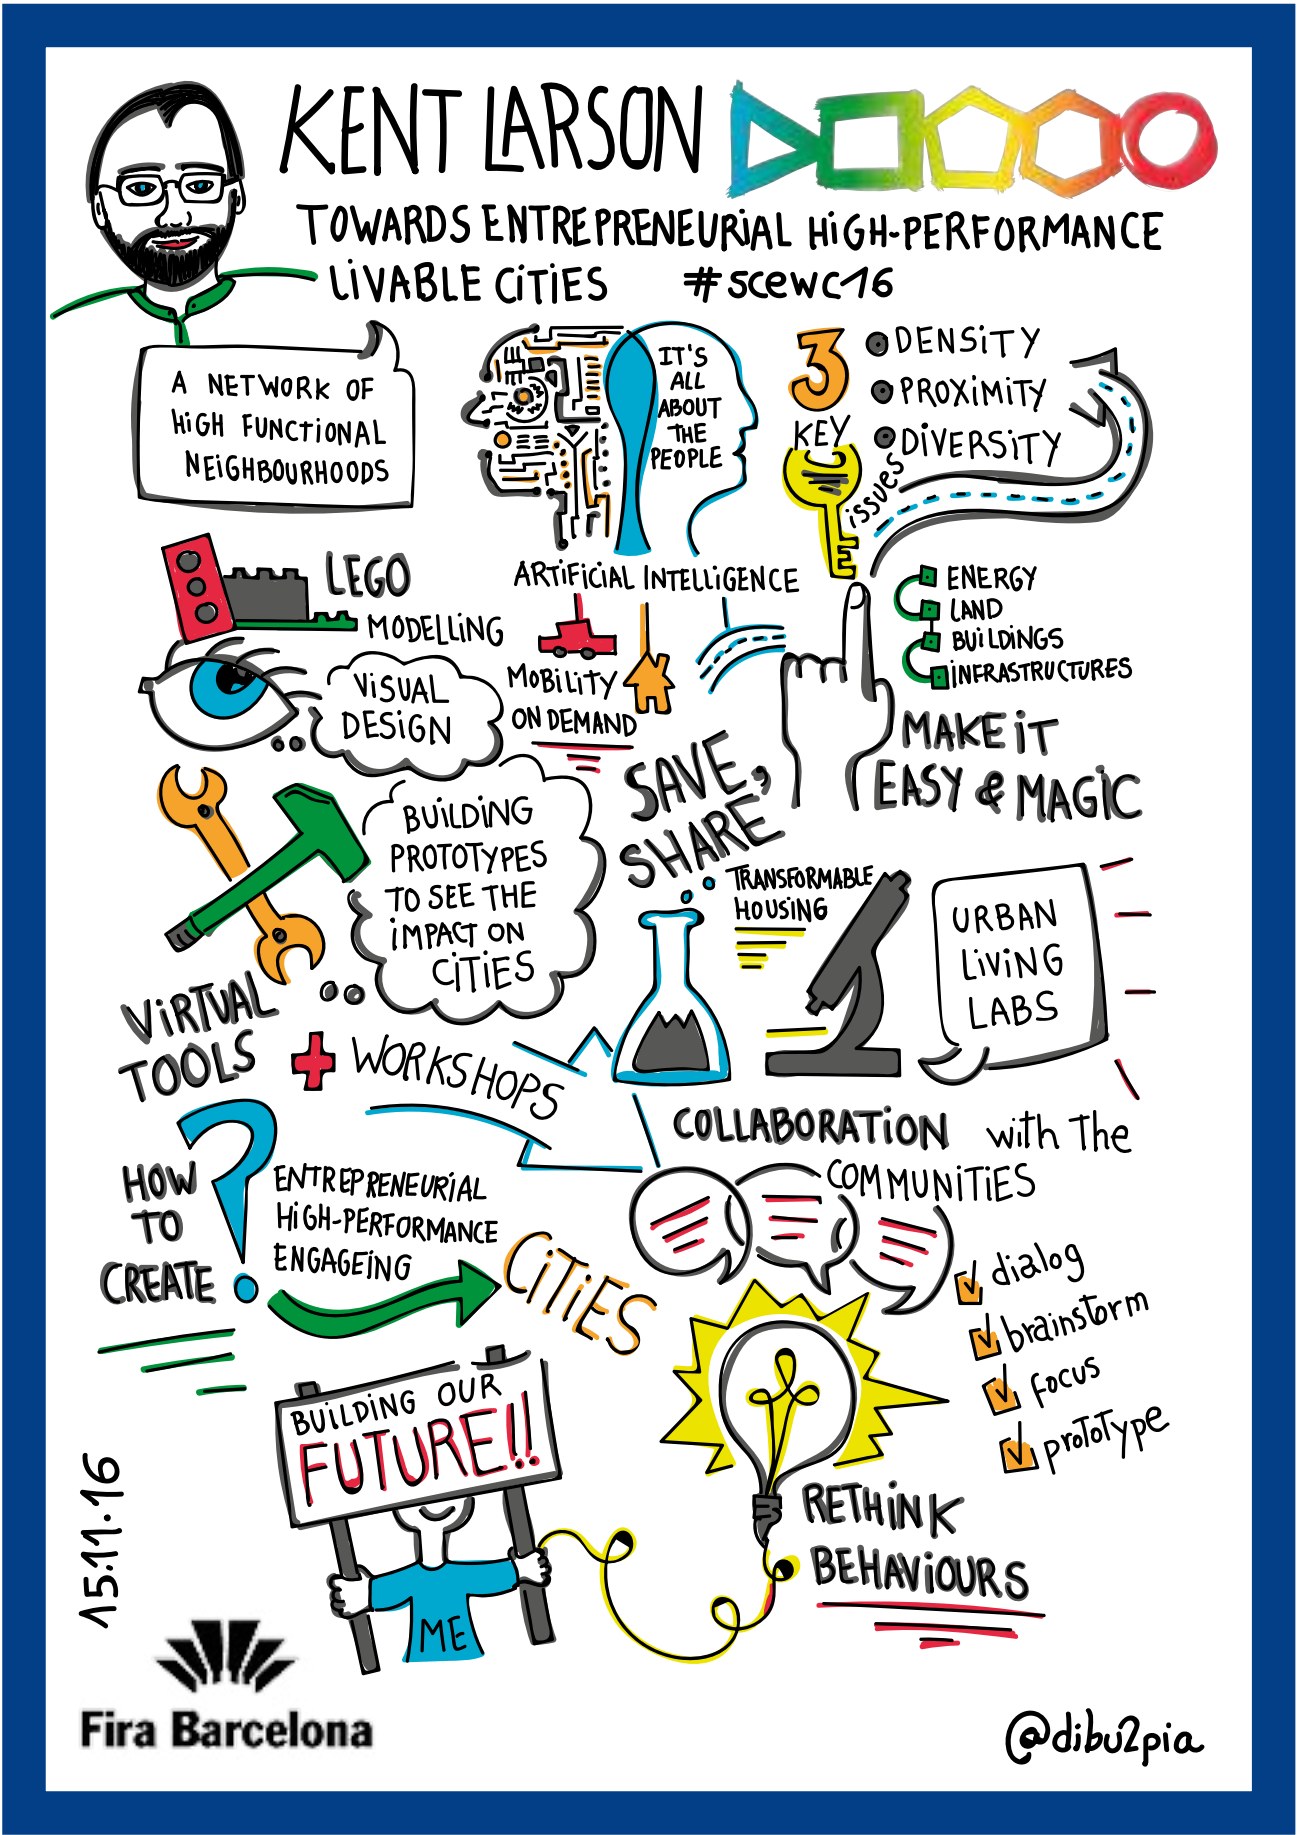 KENT LARSON
TOWARDS ENTREPRENEURIAL HIGH-PERFORMANCE
LIVABLE CITIES #scewc16
A NETWORK OF
HIGH FUNCTIONAL
NEIGHBOURHOODS
IT'S
ALL
ABOUT
THE
PEOPLE
3
KEY
issues
DENSITY
PROXIMITY
DIVERSITY
LEGO
MODELLING
ARTIFICIAL INTELLIGENCE
MOBILITY
ON DEMAND
ENERGY
LAND
BUILDINGS
INFRASTRUCTURES
VISUAL
DESIGN
MAKE IT
EASY & MAGIC
SAVE,
SHARE
BUILDING
PROTOTYPES
TO SEE THE
IMPACT ON
CITIES
TRANSFORMABLE
HOUSING
URBAN
LIVING
LABS
VIRTUAL
TOOLS
+ WORKSHOPS
COLLABORATION with The
COMMUNITIES
HOW
TO
CREATE
?
ENTREPRENEURIAL
HIGH-PERFORMANCE
ENGAGEING
CITIES
dialog
brainstorm
focus
proToType
BUILDING OUR
FUTURE!!
ME
RETHINK
BEHAVIOURS
15.11.16
Fira Barcelona
@dibu2pia